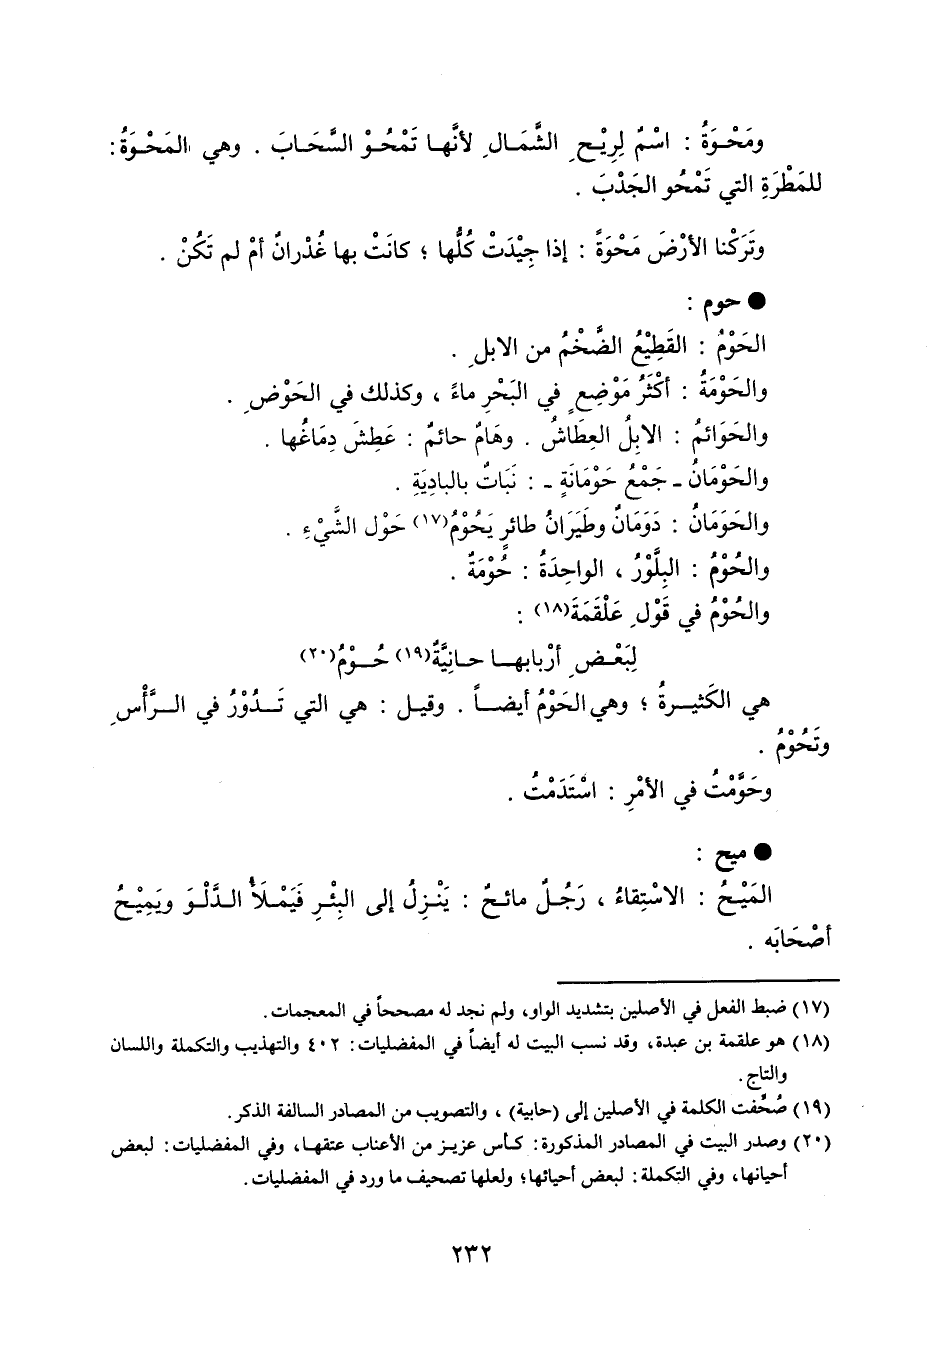 ومَحْوَةُ : اسْمٌ لِرِيْحِ الشَّمَالِ لأنَّها تَمْحُوْ السَّحَابَ . وهي المَحْوَةُ :
للمَطْرَةِ التي تَمْحُو الجَدْبَ .
وتَرَكْنا الأرْضَ مَحْوَةً : إذا جِيْدَتْ كُلُّها ؛ كانَتْ بها غُدْرانٌ أمْ لم تَكُنْ .
● حوم :
الحَوْمُ : القَطِيْعُ الضَّخْمُ من الابلِ .
والحَوْمَةُ : أكْثَرُ مَوْضِعٍ في البَحْرِ ماءً ، وكذلك في الحَوْضِ .
والحَوَائمُ : الابِلُ العِطَاشُ . وهَامٌ حائمٌ : عَطِشَ دِمَاغُها .
والحَوْمَانُ ـ جَمْعُ حَوْمَانَةٍ ـ : نَبَاتٌ بالبادِيَةِ .
والحَوَمَانُ : دَوَمَانٌ وطَيَرَانُ طائرٍ يَحُوْمُ(١٧) حَوْل الشَّيْءِ .
والحُوْمُ : البِلَّوْرُ ، الواحِدَةُ : حُوْمَةٌ .
والحُوْمُ في قَوْلِ عَلْقَمَةَ(١٨) :
لِبَعْضِ أرْبابها حانِيَّةٌ(١٩) حُوْمُ(٢٠)
هي الكَثيرةُ ؛ وهي الحَوْمُ أيضاً . وقيل : هي التي تَدُوْرُ في الرَّأْسِ
وتَحُوْمُ .
وحَوَّمْتُ في الأمْرِ : اسْتَدَمْتُ .
● ميح :
المَيْحُ : الاسْتِقاءُ ، رَجُلٌ مائحٌ : يَنْزِلُ إلى البِئْرِ فَيَمْلَأُ الدَّلْوَ ويَمِيْحُ
أصْحَابَه .
(١٧) ضبط الفعل في الأصلين بتشديد الواو، ولم نجد له مصححاً في المعجمات.
(١٨) هو علقمة بن عبدة، وقد نسب البيت له أيضاً في المفضليات: ٤٠٢ والتهذيب والتكملة واللسان
والتاج.
(١٩) صُحِّفت الكلمة في الأصلين إلى (حابية) ، والتصويب من المصادر السالفة الذكر.
(٢٠) وصدر البيت في المصادر المذكورة: كأس عزيز من الأعناب عتقها، وفي المفضليات: لبعض
أحيانها، وفي التكملة: لبعض أحيائها؛ ولعلها تصحيف ما ورد في المفضليات.
٢٣٢